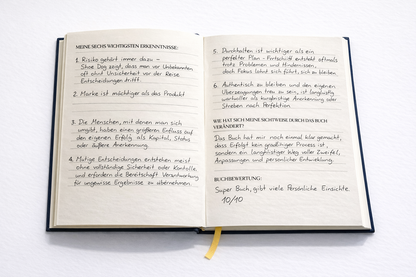 MEINE SECHS WICHTIGSTEN ERKENNTNISSE:
1. Risiko gehört immer dazu –
Shoe Dog zeigt, dass man vor Unbekanntem
oft ohne Unsicherheit vor der Reise
Entscheidungen trifft.
2. Marke ist mächtiger als das Produkt
3. Die Menschen, mit denen man sich
umgibt, haben einen größeren Einfluss auf
den eigenen Erfolg, als Kapital, Status
oder äußere Anerkennung.
4. Mutige Entscheidungen entstehen meist
ohne vollständige Sicherheit oder Kontrolle
und erfordern die Bereitschaft, Verantwortung
für ungewisse Ergebnisse zu übernehmen.
5. Durchhalten ist wichtiger als ein
perfekter Plan – Fortschritt entsteht oftmals
trotz Problemen und Hindernissen,
doch Fokus lohnt sich führt, sich zu bleiben.
6. Authentisch zu bleiben und den eigenen
Überzeugungen treu zu sein, ist langfristig
wertvoller als kurzfristige Anerkennung oder
Streben nach Perfektion.
WIE HAT SICH MEINE SICHTWEISE DURCH DAS BUCH
VERÄNDERT?
Das Buch hat mir noch einmal klar gemacht,
dass Erfolg kein geradliniger Prozess ist,
sondern ein langfristiger Weg voller Zweifel,
Anpassungen und persönlicher Entwicklung.
BUCHBEWERTUNG:
Super Buch, gibt viele Persönliche Einsichte.
10/10